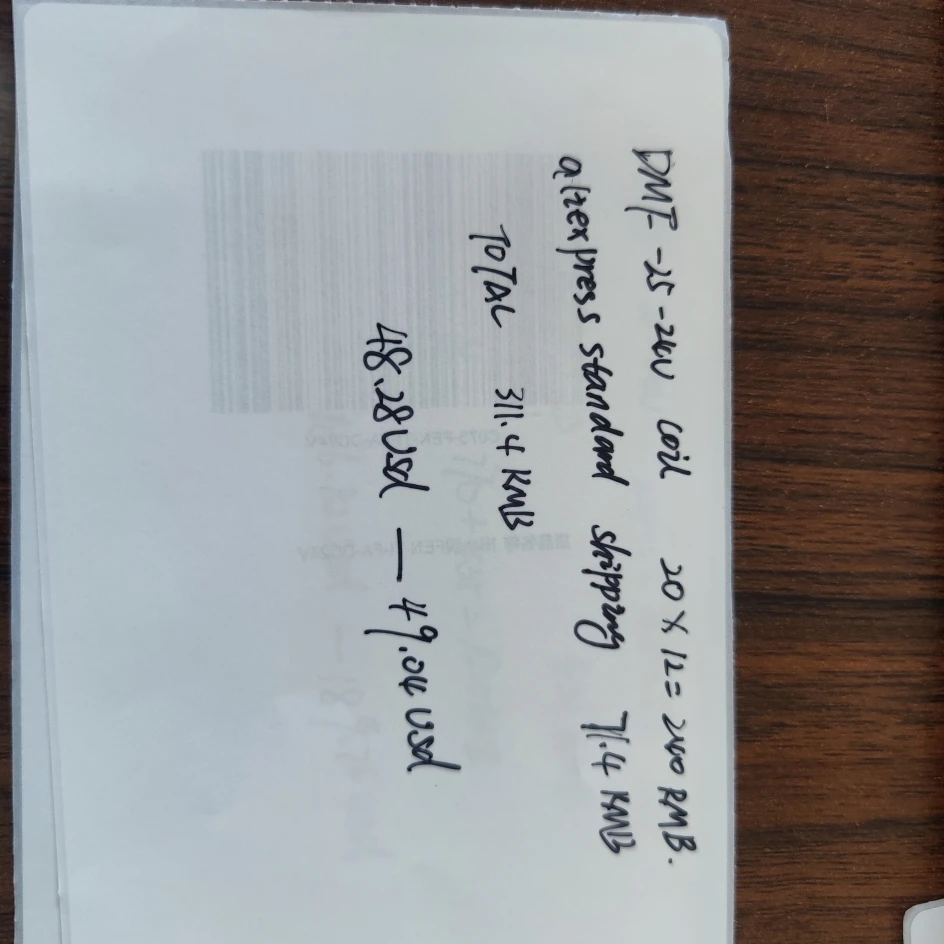 DMF-25-24V coil 20 x 12 = 240 RMB.
aliexpress standard shipping 71.4 RMB
TOTAL 311.4 RMB
48.28 usd — 49.04 usd